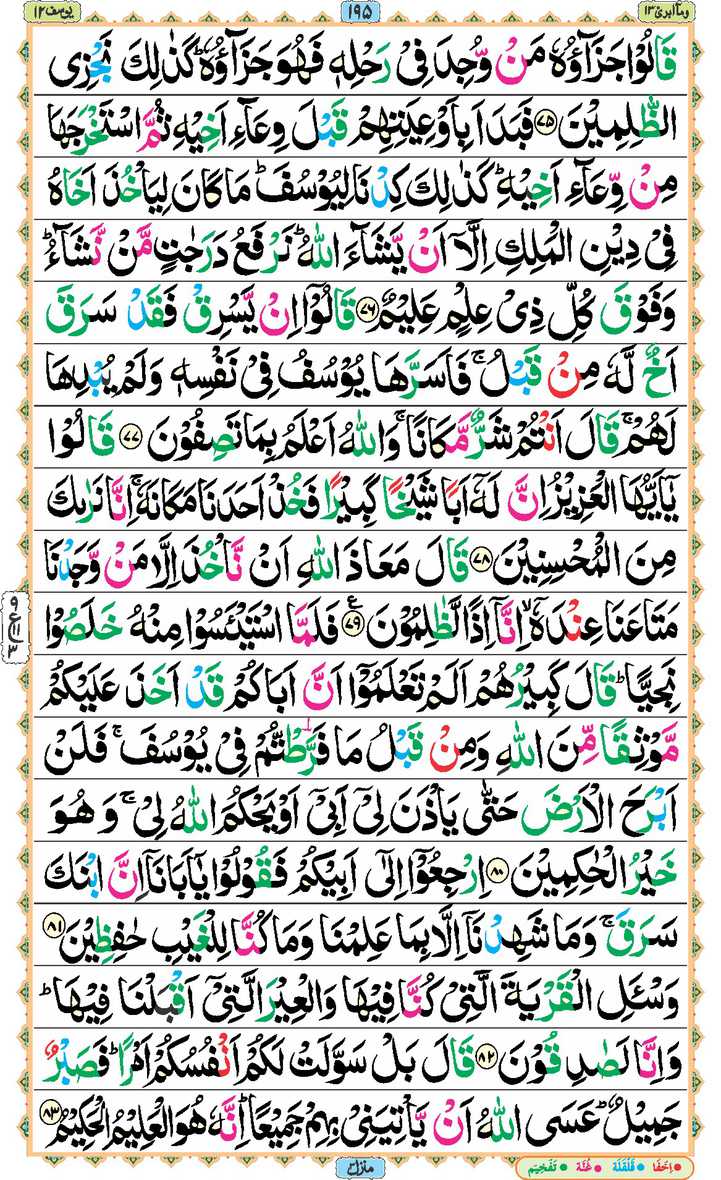 وما ابرئ ۱۳
۱۹۵
یوسف ۱۲
قَالُوْا جَزَآؤُهٗ مَنْ وُّجِدَ فِیْ رَحْلِهٖ فَهُوَ جَزَآؤُهٗ ؕ كَذٰلِكَ نَجْزِی
الظّٰلِمِیْنَ ۷۵ فَبَدَاَ بِاَوْعِیَتِهِمْ قَبْلَ وِعَآءِ اَخِیْهِ ثُمَّ اسْتَخْرَجَهَا
مِنْ وِّعَآءِ اَخِیْهِ ؕ كَذٰلِكَ كِدْنَا لِیُوْسُفَ ؕ مَا كَانَ لِیَاْخُذَ اَخَاهُ
فِیْ دِیْنِ الْمَلِكِ اِلَّاۤ اَنْ یَّشَآءَ اللّٰهُ ؕ نَرْفَعُ دَرَجٰتٍ مَّنْ نَّشَآءُ ؕ
وَفَوْقَ كُلِّ ذِیْ عِلْمٍ عَلِیْمٌ ۷۶ قَالُوْۤا اِنْ یَّسْرِقْ فَقَدْ سَرَقَ
اَخٌ لَّهٗ مِنْ قَبْلُ ۚ فَاَسَرَّهَا یُوْسُفُ فِیْ نَفْسِهٖ وَلَمْ یُبْدِهَا
لَهُمْ ۚ قَالَ اَنْتُمْ شَرٌّ مَّكَانًا ۚ وَاللّٰهُ اَعْلَمُ بِمَا تَصِفُوْنَ ۷۷ قَالُوْا
یٰۤاَیُّهَا الْعَزِیْزُ اِنَّ لَهٗۤ اَبًا شَیْخًا كَبِیْرًا فَخُذْ اَحَدَنَا مَكَانَهٗ ۚ اِنَّا نَرٰىكَ
مِنَ الْمُحْسِنِیْنَ ۷۸ قَالَ مَعَاذَ اللّٰهِ اَنْ نَّاْخُذَ اِلَّا مَنْ وَّجَدْنَا
مَتَاعَنَا عِنْدَهٗۤ ۙ اِنَّاۤ اِذًا لَّظٰلِمُوْنَ ۷۹ ع فَلَمَّا اسْتَیْـَٔسُوْا مِنْهُ خَلَصُوْا
نَجِیًّا ؕ قَالَ كَبِیْرُهُمْ اَلَمْ تَعْلَمُوْۤا اَنَّ اَبَاكُمْ قَدْ اَخَذَ عَلَیْكُمْ
مَّوْثِقًا مِّنَ اللّٰهِ وَمِنْ قَبْلُ مَا فَرَّطْتُّمْ فِیْ یُوْسُفَ ۚ فَلَنْ
اَبْرَحَ الْاَرْضَ حَتّٰی یَاْذَنَ لِیْۤ اَبِیْۤ اَوْ یَحْكُمَ اللّٰهُ لِیْ ۚ وَهُوَ
خَیْرُ الْحٰكِمِیْنَ ۸۰ اِرْجِعُوْۤا اِلٰۤی اَبِیْكُمْ فَقُوْلُوْا یٰۤاَبَانَاۤ اِنَّ ابْنَكَ
سَرَقَ ۚ وَمَا شَهِدْنَاۤ اِلَّا بِمَا عَلِمْنَا وَمَا كُنَّا لِلْغَیْبِ حٰفِظِیْنَ ۸۱
وَسْـَٔلِ الْقَرْیَةَ الَّتِیْ كُنَّا فِیْهَا وَالْعِیْرَ الَّتِیْۤ اَقْبَلْنَا فِیْهَا ؕ
وَاِنَّا لَصٰدِقُوْنَ ۸۲ قَالَ بَلْ سَوَّلَتْ لَكُمْ اَنْفُسُكُمْ اَمْرًا ؕ فَصَبْرٌ
جَمِیْلٌ ؕ عَسَی اللّٰهُ اَنْ یَّاْتِیَنِیْ بِهِمْ جَمِیْعًا ؕ اِنَّهٗ هُوَ الْعَلِیْمُ الْحَكِیْمُ ۸۳
ع
۱۱
۳
منزل ۳
اِخفَا قَلْقَلَہ غُنَّہ تَفْخِیْم